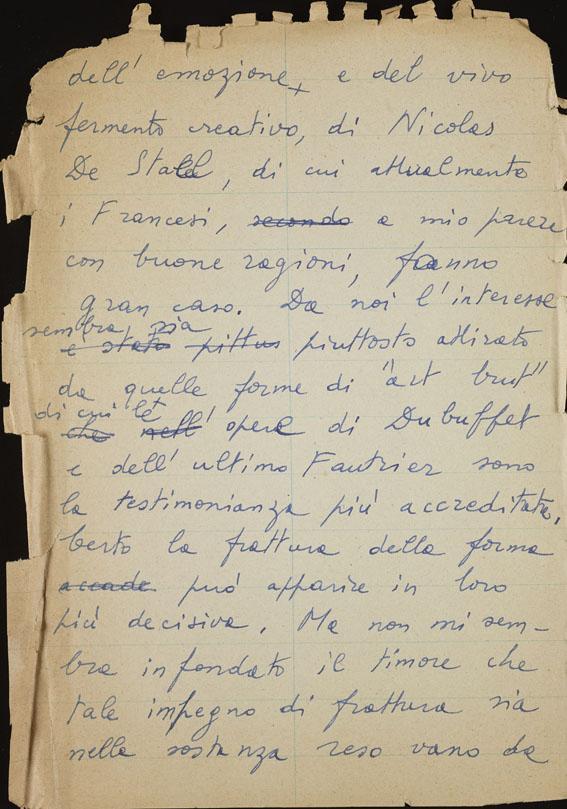 dell' emozione + e del vivo
fermento creativo, di Nicolas
De Staël, di cui attualmente
i Francesi, secondo a mio parere
con buone ragioni, fanno
gran caso. Da noi l'interesse
sembra sia
è stato piuttosto attirato
da quelle forme di "art brut"
di cui le
che nell' opere di Dubuffet
e dell' ultimo Fautrier sono
la testimonianza più accreditata.
Certo la frattura della forma
accade può apparire in loro
più decisiva. Ma non mi sem-
bra infondato il timore che
tale impegno di frattura sia
nella sostanza reso vano da